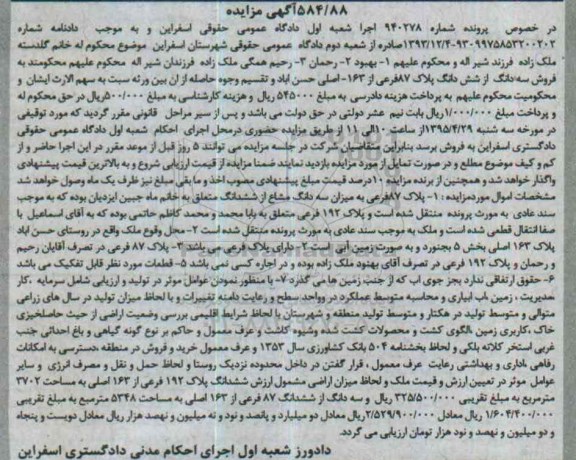 ۵۸۴/۸۸آگهی مزایده
در خصوص پرونده شماره ۹۴۰۲۷۸ اجرا شعبه اول دادگاه عمومی حقوقی اسفراین و به موجب دادنامه شماره
۹۳۰۹۹۷۵۸۵۳۲۰۰۲۰۲-۱۳۹۳/۱۲/۴صادره از شعبه دوم دادگاه عمومی حقوقی شهرستان اسفراین موضوع محکوم له خانم گلدسته
ملک زاده فرزند شیر اله و محکوم علیهم ۱- بهبود ۲- رحمان ۳- رحیم همگی ملک زاده فرزندان شیر اله محکوم علیهم محکومند به
فروش سه‌دانگ از شش دانگ پلاک ۸۷فرعی از ۱۶۳- اصلی حسن اباد و تقسیم وجوه حاصله از ان بین ورثه نسبت به سهم الارث ایشان و
محکومیت محکوم علیهم به پرداخت هزینه دادرسی به مبلغ ۵۴۵۰۰۰ ریال و هزینه کارشناسی به مبلغ ۵۰۰/۰۰۰ریال در حق محکوم له
و پرداخت مبلغ ۱/۰۰۰/۰۰۰ریال بابت نیم عشر دولتی در حق دولت می باشد و پس از سیر مراحل قانونی مقرر گردید که مورد توقیفی
در مورخه سه شنبه ۱۳۹۵/۴/۲۹از ساعت ۱۰الی ۱۱ از طریق مزایده حضوری درمحل اجرای احکام شعبه اول دادگاه عمومی حقوقی
دادگستری اسفراین به فروش برسد بنابراین متقاضیان شرکت در جلسه مزایده می توانند ۵ روز قبل از موعد مقرر در این اجرا حاضر و از
کم و کیف موضوع مطلع و در صورت تمایل از مورد مزایده بازدید نمایند ضمنا مزایده از قیمت ارزیابی شروع و به بالاترین قیمت پیشنهادی
واگذار خواهد شد و همچنین از برنده مزایده ۱۰درصد قیمت مبلغ پیشنهادی مصوب اخذ و مابقی مبلغ نیز ظرف یک ماه وصول خواهد شد
مشخصات اموال موردمزایده : ۱- پلاک ۸۷فرعی به میزان سه دانگ مشاع از ششدانگ متعلق به خانم ماه جبین ایزدیان بوده که به موجب
سند عادی به مورث پرونده منتقل شده است و پلاک ۱۹۲ فرعی متعلق به بابا محمد و محمد کاظم حاتمی بوده که به آقای اسماعیل با
صفا انتقال قطعی شده است و ملک به موجب سند عادی به مورث پرونده منتقل شده است ۲- محل وقوع ملک واقع در روستای حسن اباد
پلاک ۱۶۳ اصلی بخش ۵ بجنورد و به صورت زمین آبی است ۲- دارای پلاک فرعی می باشد ۳- پلاک ۸۷ فرعی در تصرف آقایان رحیم
و رحمان و پلاک ۱۹۲ فرعی در تصرف آقای بهبود ملک زاده بوده و در اجاره کسی نمی باشد ۵- قطعات مورد نظر قابل تفکیک می باشد
۶- حقوق ارتفاقی ندارد بجز جوی اب که از جنب زمین ها می گذرد ۷- با منظور نمودن عوامل موثر در تولید و ارزیابی شامل سرمایه ،کار
،مدیریت ، زمین ،اب ابیاری و محاسبه متوسط عملکرد در وواحد سطح و رعایت دامنه تغییرات و با لحاظ میزان تولید در سال های زراعی
متوالی و متوسط تولید در هکتار و متوسط تولید منطقه و شهرستان با لحاظ شرایط اقلیمی بررسی وضعیت اراضی از حیث حاصلخیزی
خاک ،کاربری زمین ،الگوی کشت و محصولات کشت شده وشیوه کاشت و عرف معمول و حاکم بر نوع گونه گیاهی و باغ احداثی جنب
غربی استخر کلاته بلکی و لحاظ بخشنامه ۵۰۴ بانک کشاورزی سال ۱۳۵۳ و عرف معمول خرید و فروش در منطقه ،دسترسی به امکانات
رفاهی ،اداری و بهداشتی رعایت عرف معمول ، قرار گفتن در داخل محدوده نزدیک روستا و لحاظ حمل و نقل و مصرف انرژی و سایر
عوامل موثر در تعیین ارزش و قیمت ملک و لحاظ میزان اراضی مشمول ارزش ششدانگ پلاک ۱۹۲ فرعی از ۱۶۳ اصلی به مساحت ۳۷۰۲
مترمربع به مبلغ تقریبی ۳۲۵/۵۰۰/۰۰۰ ریال و سه دانگ از ششدانگ ۸۷ فرعی از ۱۶۳ اصلی به مساحت ۵۳۴۸ مترمربع به مبلغ تقریبی
۱/۶۰۴/۴۰۰/۰۰۰ ریال معادل ۲/۵۲۹/۹۰۰/۰۰۰ریال معادل دو میلیارد و پانصد و نود و نه میلیون و نهصد هزار ریال معادل دویست و پنجاه
و دو میلیون و نهصد و نود هزار تومان ارزیابی می گردد.
دادورز شعبه اول اجرای احکام مدنی دادگستری اسفراین